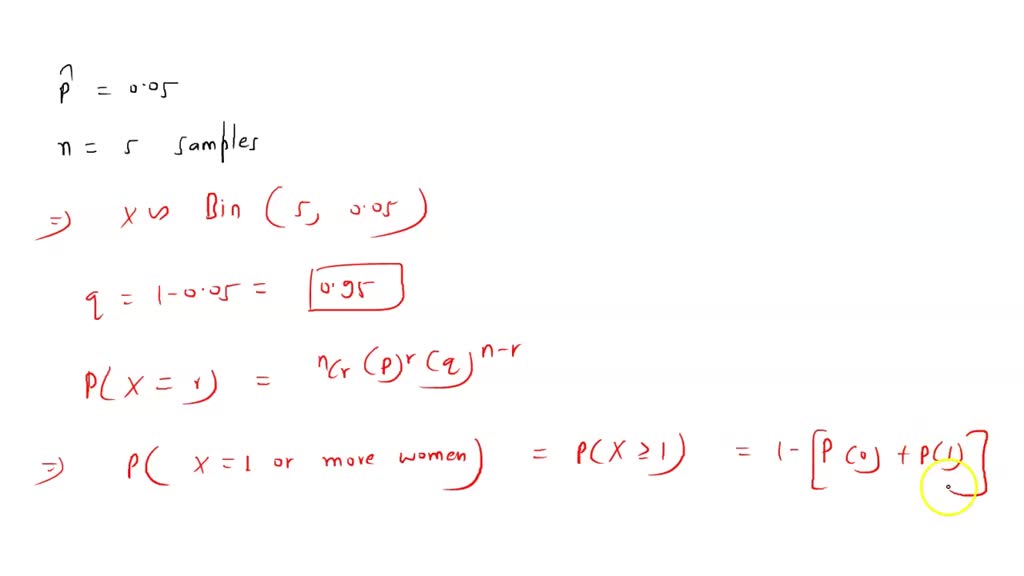 p̂ = 0.05
n = 5 samples
⇒ X ~ Bin (5, 0.05)
q = 1-0.05 = 0.95
P(X = r) = nCr (p)^r (q)^n-r
⇒ P( X = 1 or more women) = P(X ≥ 1) = 1 - [P(0) + P(1)]